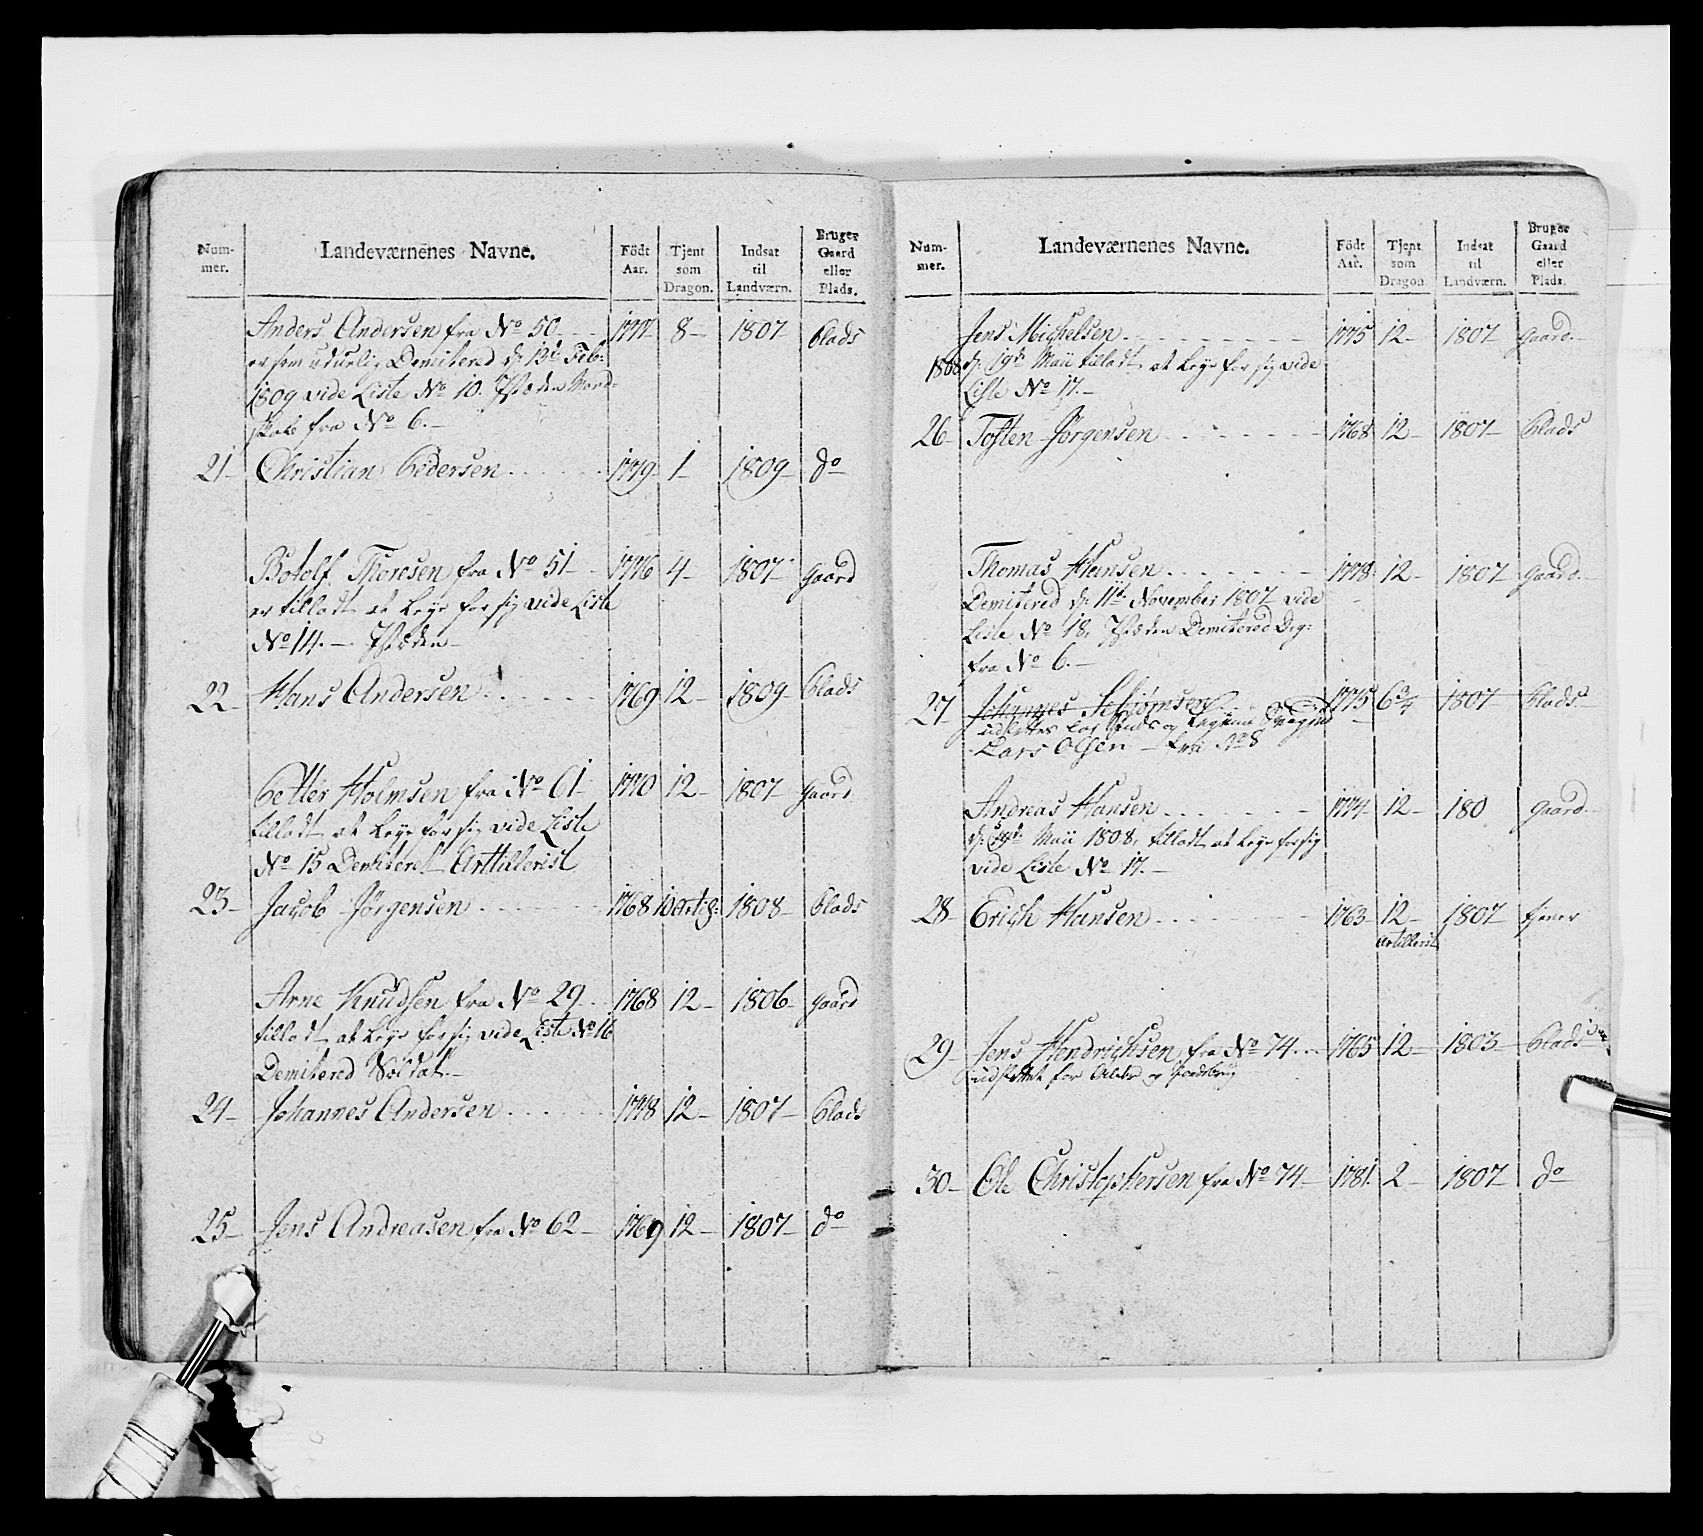 Num-
mer.
Landeværnenes Navne.
Födt
Aar.
Tjent
som
Dragon.
Indsat
til
Landværn.
Bruger
Gaard
eller
Plads.
Anders Andersen fra No 50 1777 8 1807 Plads
er som uduelig Demitered d: 13de Feb:
1809 vide Liste No 10. Istæden Mand-
skab fra No 6.
21 Christian Pedersen 1779 1 1809 do
Botolf Thoresen fra No 51 1776 4 1807 Gaard
er tilladt at leye for sig vide Liste
No 14. Istæden
22 Hans Andersen 1769 12 1809 Plads
Petter Holmsen fra No 61 1770 12 1807 Gaard
tilladt at leye for sig vide Liste
No 15 Demiteret Arttillerist
23 Jacob Jörgensen 1768 1808 Plads
Arne Knudsen fra No 29 1768 12 1806 Gaard
tilladt at leye for sig vide Liste No 16
Demitered Soldat
24 Johannes Andersen 1778 12 1807 Plads
25 Jens Andreasen fra No 62 1769 12 1807 do
Num-
mer.
Landeværnenes Navne.
Födt
Aar.
Tjent
som
Dragon.
Indsat
til
Landværn.
Bruger
Gaard
eller
Plads.
Jens Michelsen 1775 12 1807 Gaard
1808 d: 19de Maii tilladt at leye for sig vide
Liste No 17.
26 Tosten Jörgensen 1768 12 1807 Plads
Thomas Hansen 1778 12 1807 Gaard
Demitered d: 11te November 1807 vide
Liste No 18, Istæden Demitered Drg:
fra No 6.
27 Johannes 1775 6¾ 1807 Plads
Lars Olsen fra No 8
Andreas Hansen 1774 12 180 Gaard
d: 19de Maii 1808, tilladt at leye for sig
vide Liste No 17.
28 Erich Hansen 1763 12 1807 tjener
Artillerist
29 Jens Hendrichsen fra No 74 1765 12 1803 Plads
udslettet for Alder og
30 Ole Christophersen fra No 74 1781 2 1807 do